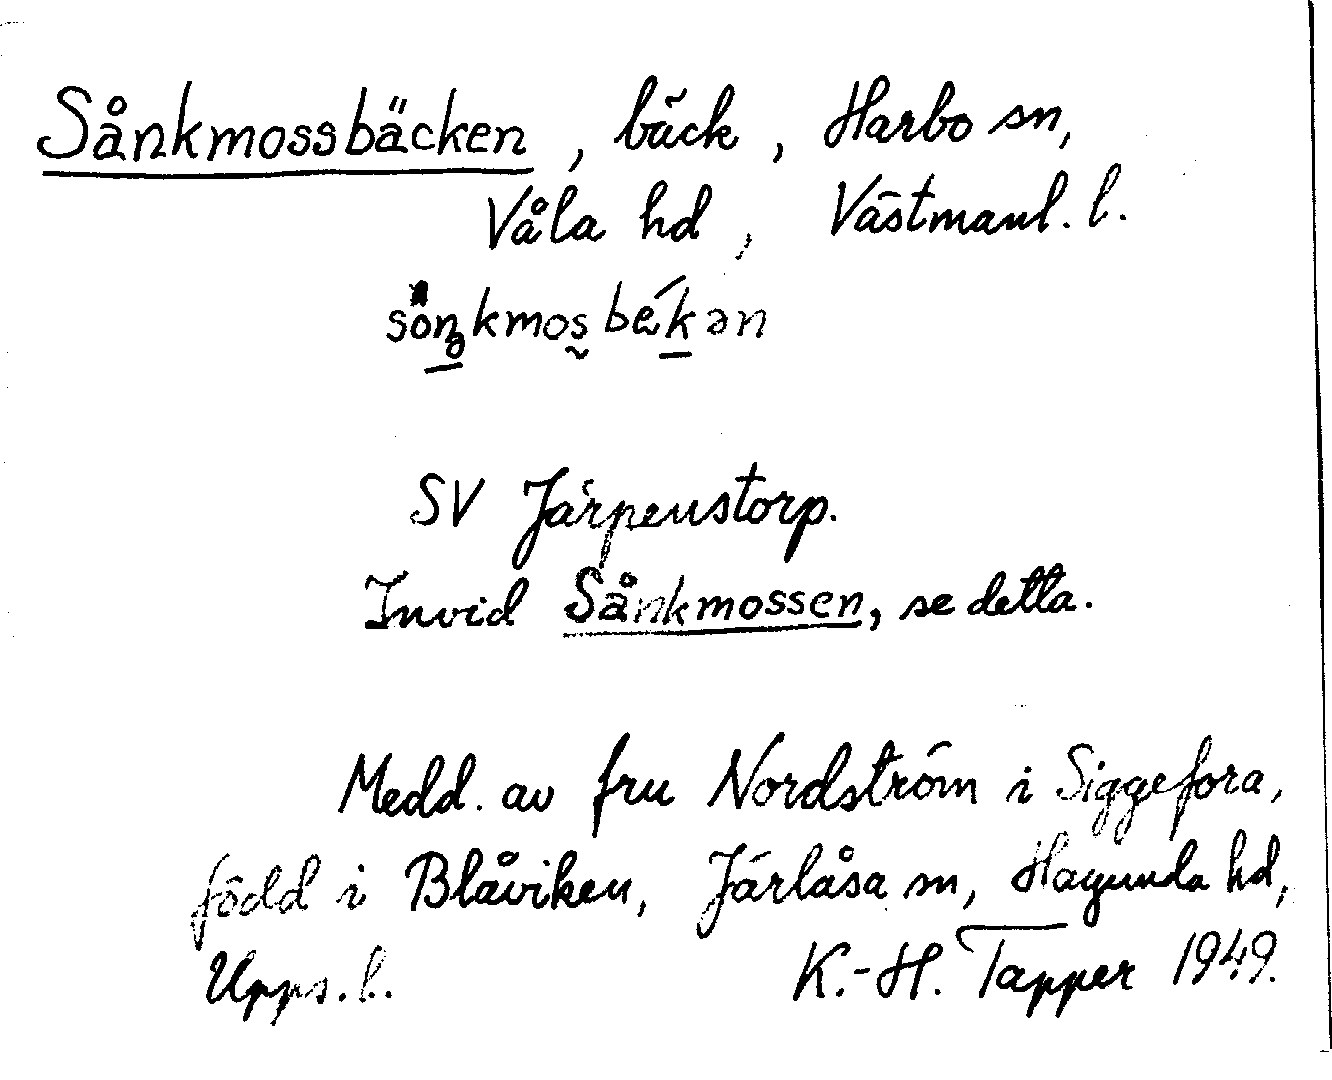 Sånkmossbäcken, bäck, Harbo sn,
Våla hd, Västmanl. l.
SV Järpenstorp.
Invid Sånkmossen, se detta.
Medd. av fru Nordström i Siggefora,
född i Blåviken, Järlåsa sn, Hagunda hd,
Upps. l. K.-H. Tapper 1949.